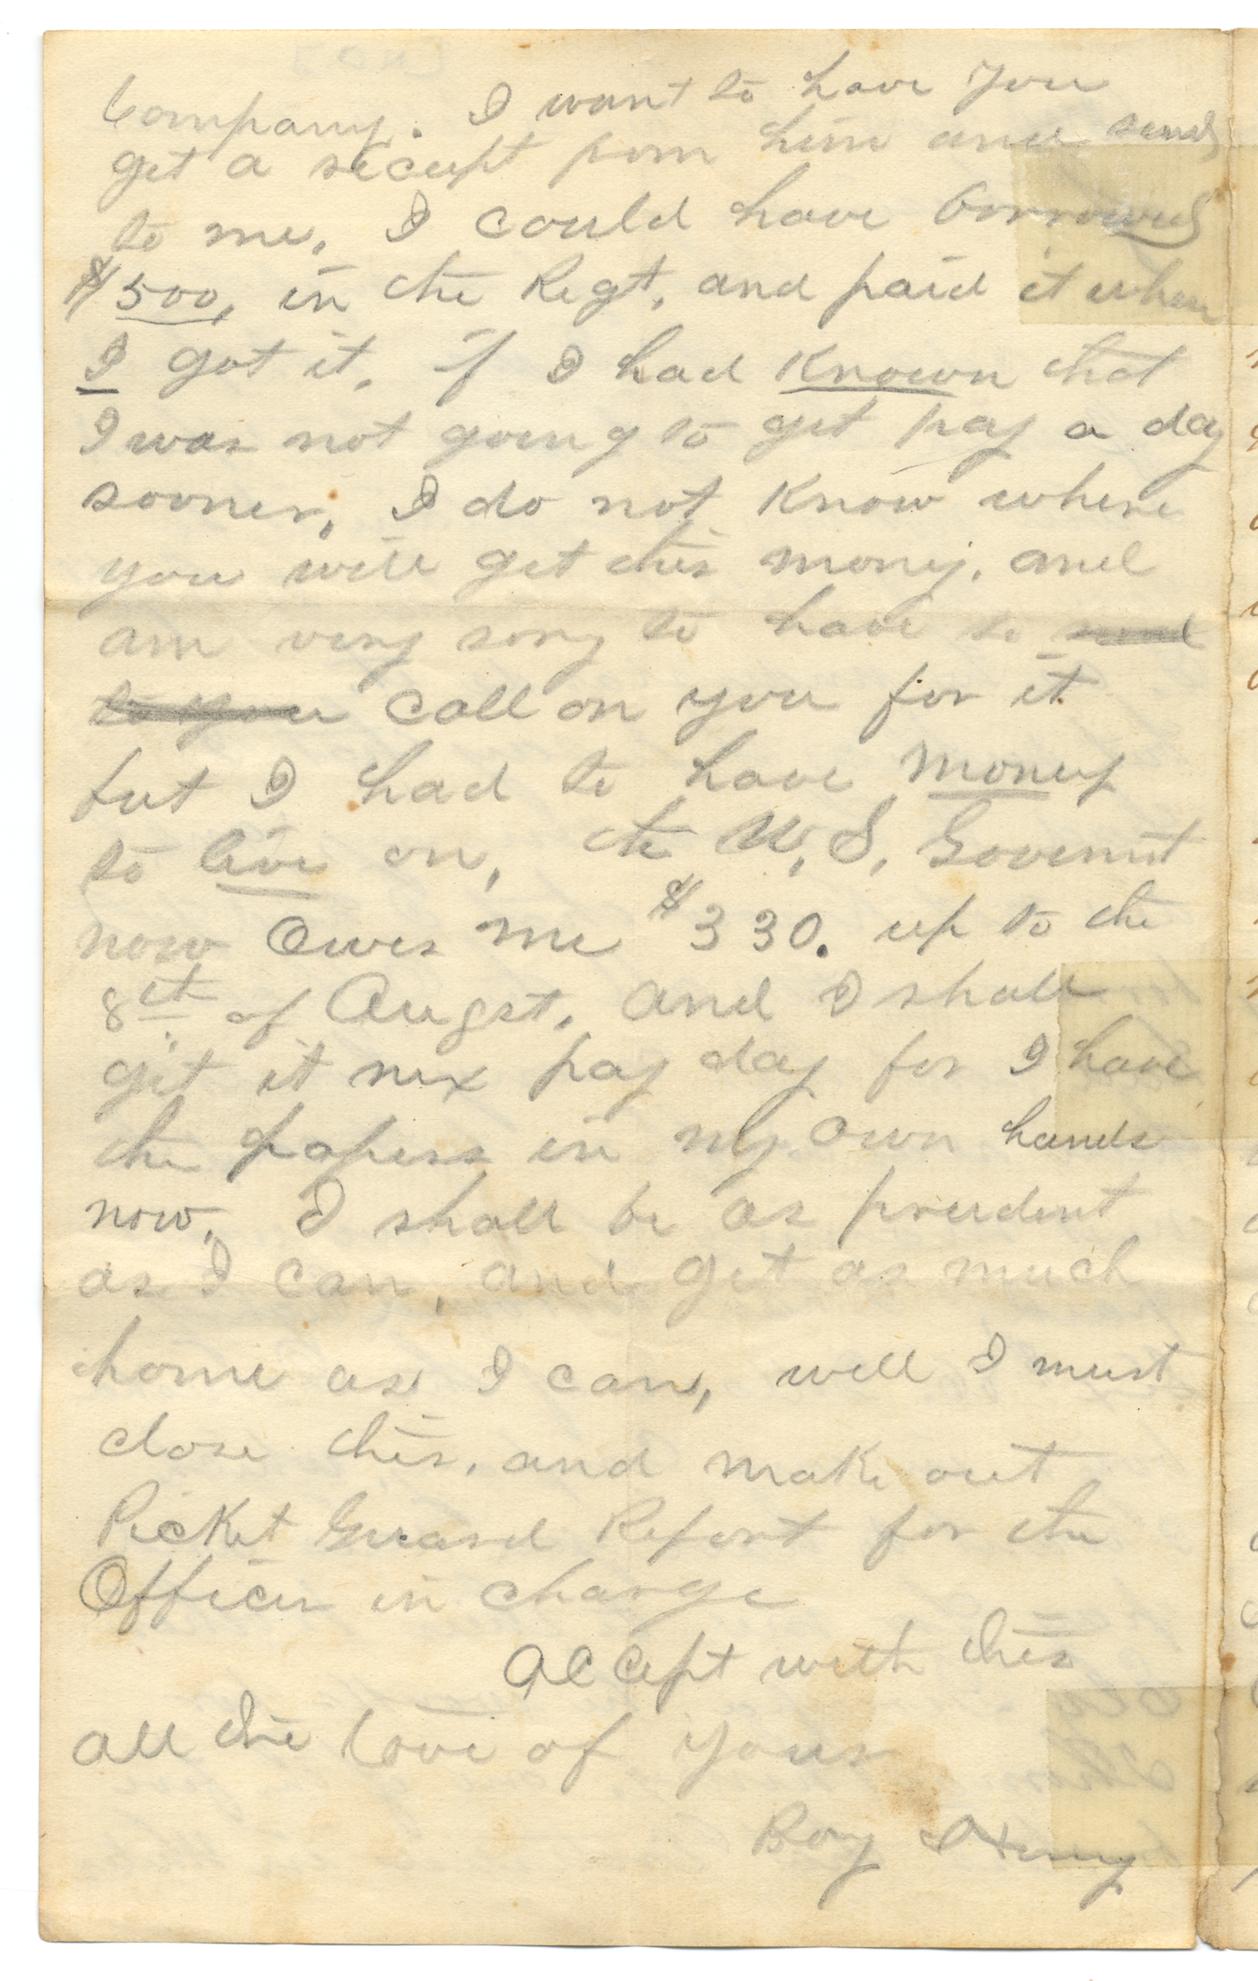 Company. I want to have you
get a receipt from him and send
to me. I could have borrowed
$500, in the Regt, and paid it when
I got it, if I had known that
I was not going to get pay a day
sooner, I do not know where
you will get this money, and
am very sory to have to send
to you call on you for it
but I had to have money
to live on, the U.S. Govermt
now Owes me $330. up to the
8th of Augst, and I shall
git it nex pay day for I have
the papers in my own hands
now, I shall be as prudent
as I can, and get as much
home as I can, well I must
close this, and make out
Picket Guard Report for the
Officer in charge
Accept with this
all the love of your
Boy Henry